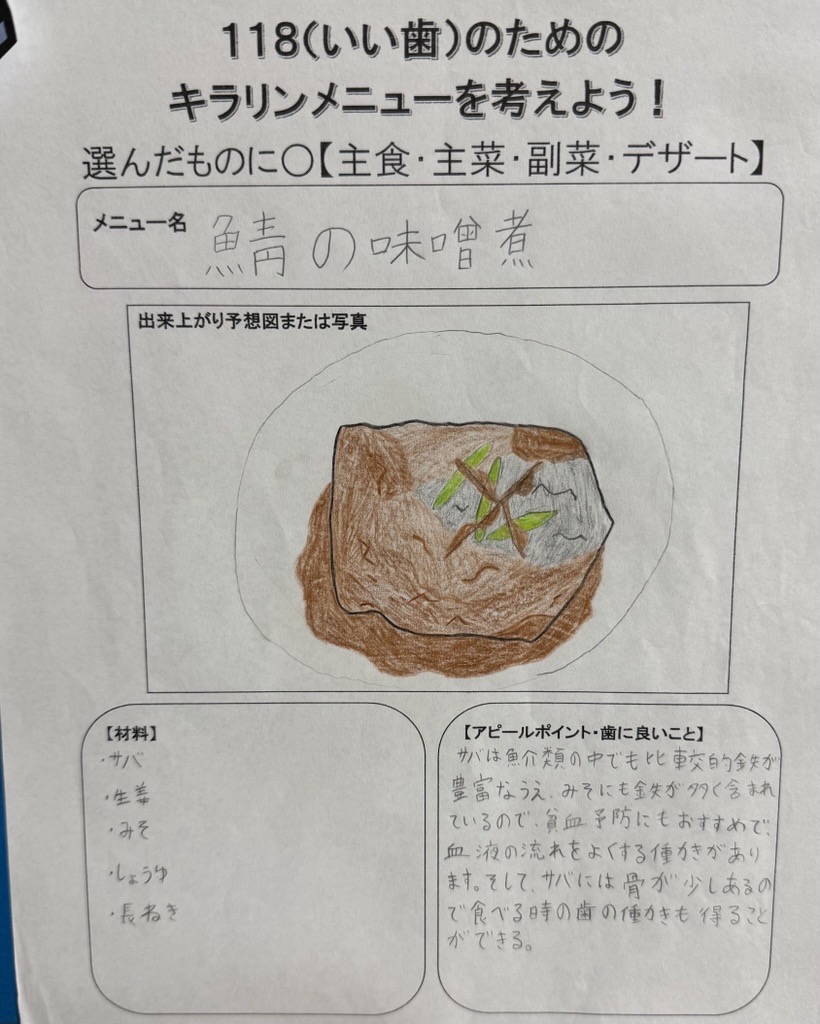 118(いい歯)のための
キラリンメニューを考えよう!
選んだものに○【主食・主菜・副菜・デザート】
メニュー名 鯖の味噌煮
出来上がり予想図または写真
【材料】
・サバ
・生姜
・みそ
・しょうゆ
・長ねぎ
【アピールポイント・歯に良いこと】
サバは魚介類の中でも比較的鉄が
豊富なうえ、みそにも鉄が多く含まれ
ているので、貧血予防にもおすすめで、
血液の流れをよくする働きがあり
ます。そして、サバには骨が少しあるの
で食べる時の歯の働きも得ること
ができる。